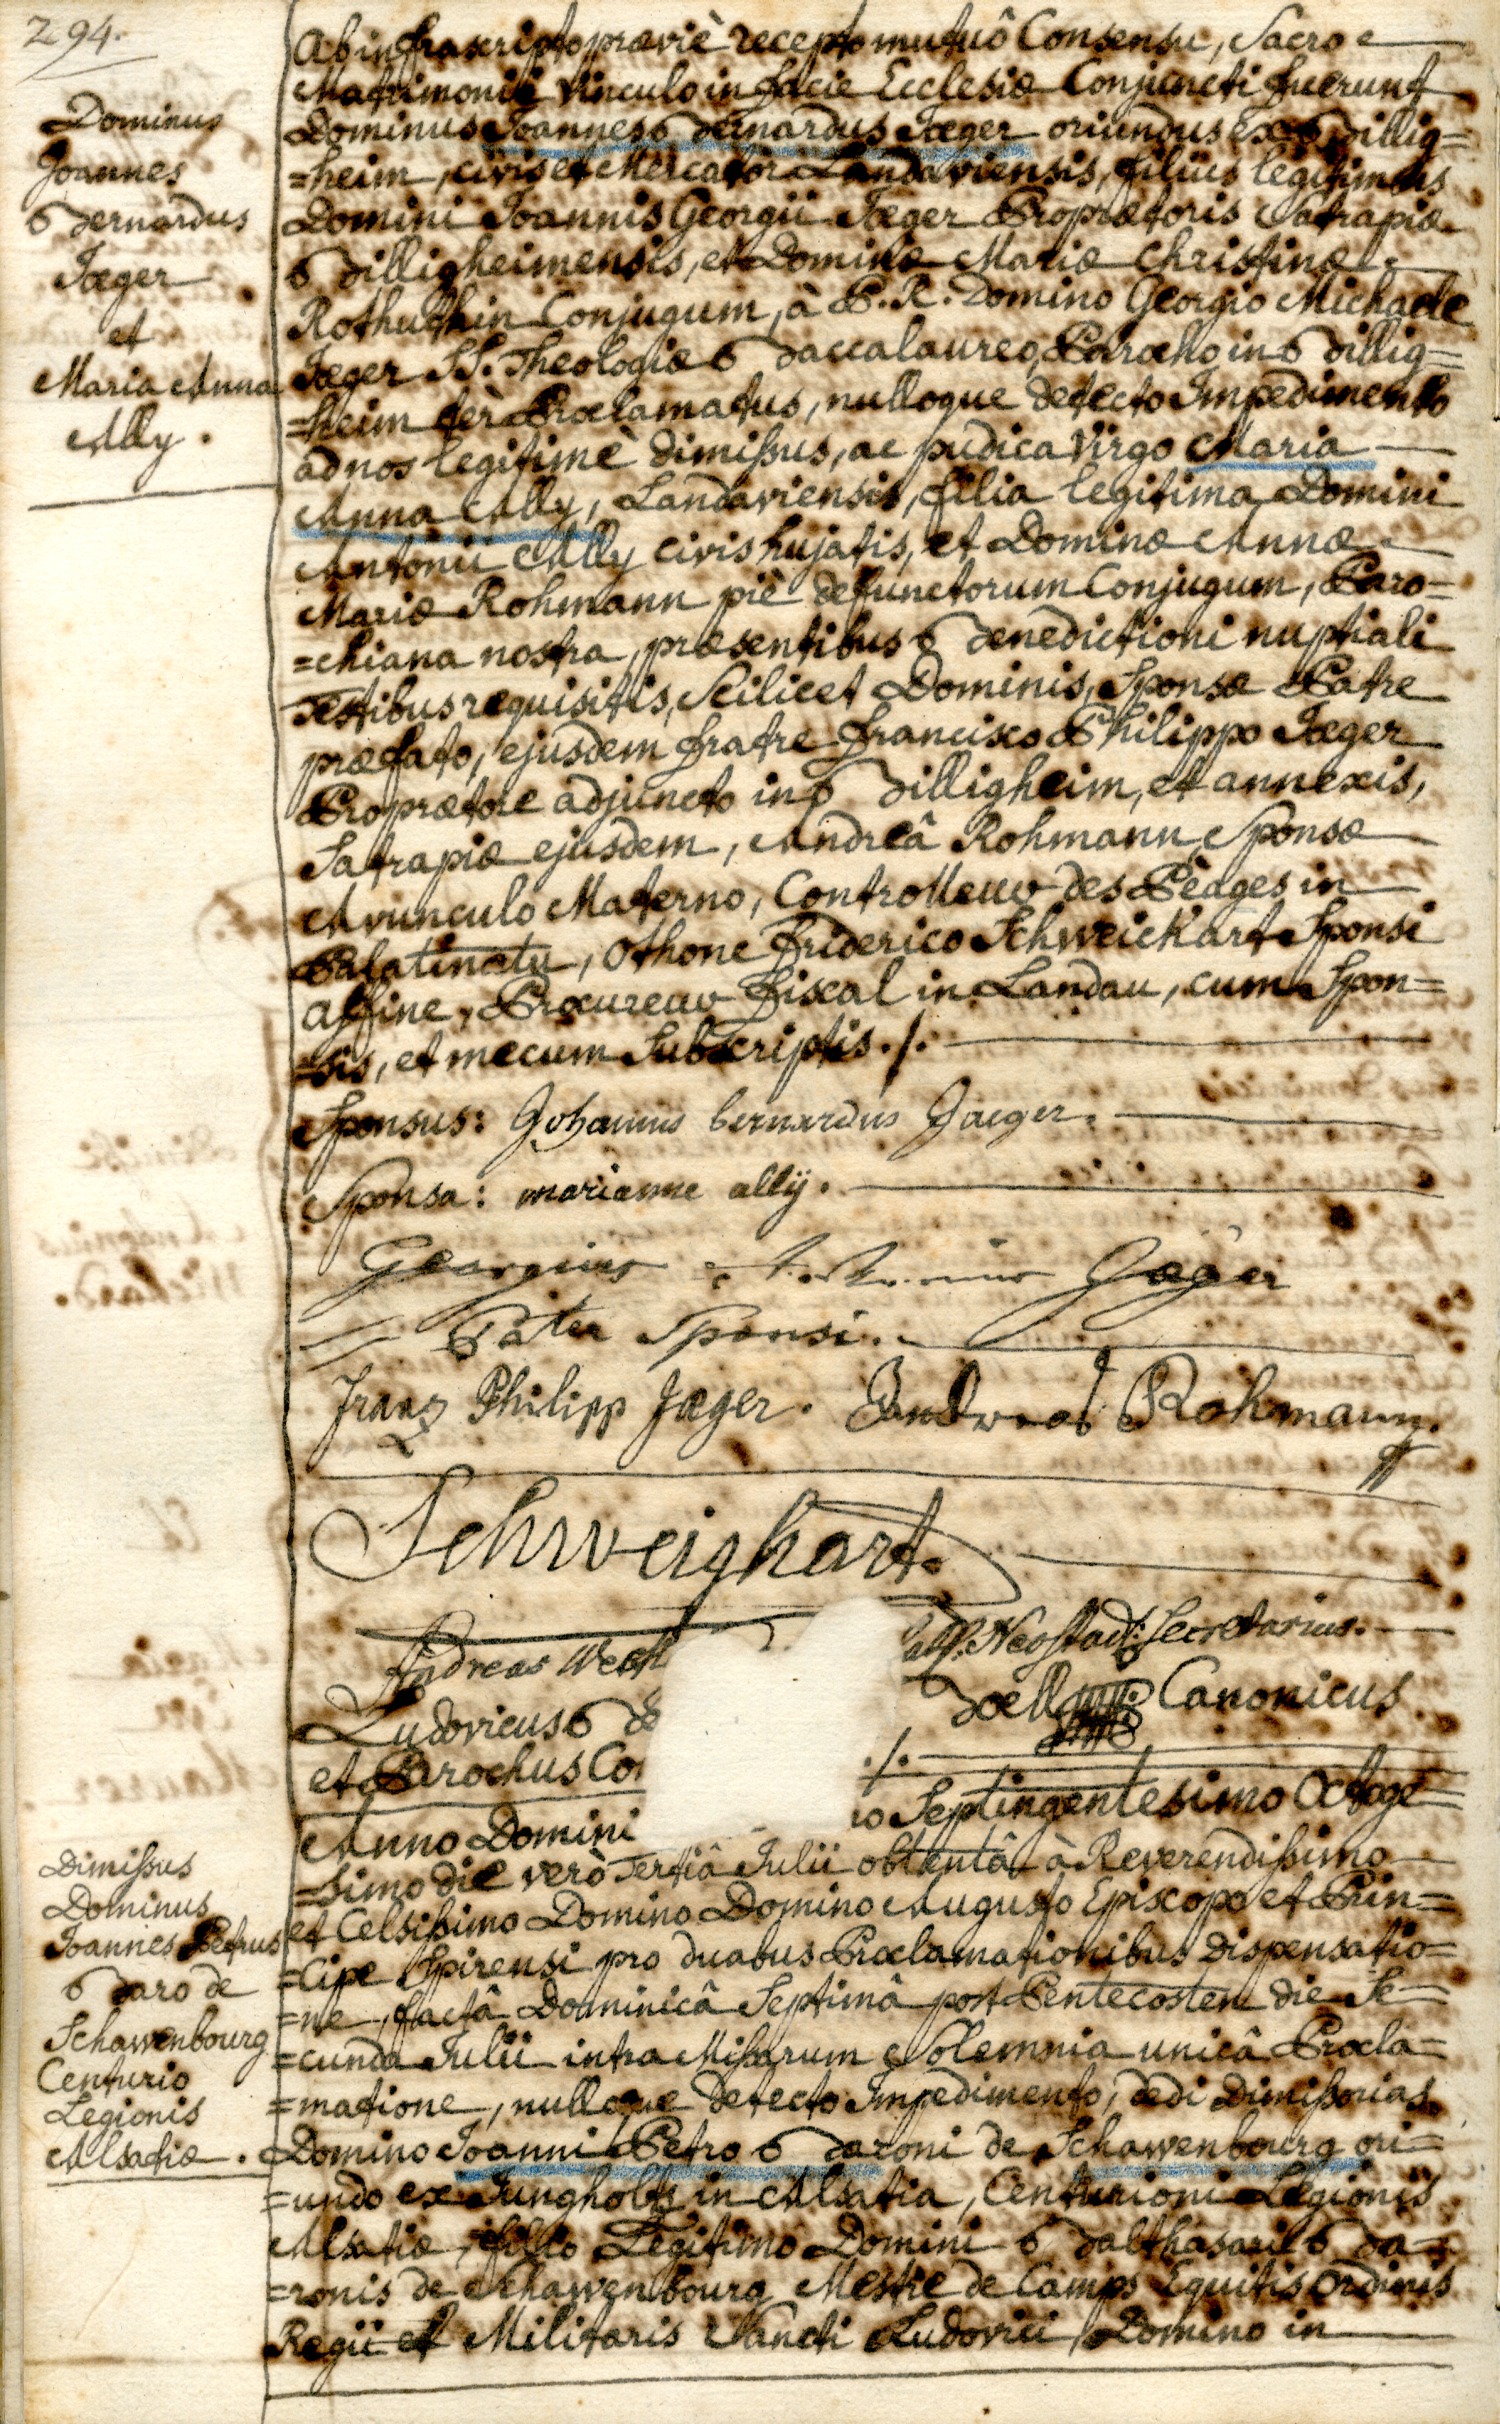 294.
Dominus
Joannes
Bernardus
Jæger
et
Maria Anna
Ally.
Ab infrascripto præviè recepto mutuô Consensu, Sacro
Matrimonii Vinculo in facie Ecclesiæ Conjuncti fuerunt
Dominus Joannes Bernardus Jæger oriundus ex Billig=
=heim, civis et Mercator Landaviensis, filius legitimus
Domini Joannis Georgii Jæger Proprætoris Satrapiæ
Billigheimensis, et Dominæ Mariæ Christinæ
Rothughin Conjugum, à P. R. Domino Georgio Michaele
Jæger SS. Theologiæ Baccalaureo, Parocho in Billig=
=heim tèr Proclamatus, nulloque detecto Impedimento
ad nos legitimè dimissus, ac pudica Virgo Maria
Anna Ally, Landaviensis, filia legitima Domini
Antonii Ally civis hujatis, et Dominæ Annæ
Mariæ Rohmann piè defunctorum Conjugum, Paro=
=chiana nostra, præsentibus Benedictioni nuptiali
Testibus requisitis, Scilicet Dominis, Sponsæ Patre
præfato, ejusdem fratre Francisco Philippo Jæger
Proprætore adjuncto in Billigheim, et annexis,
Satrapiæ ejusdem, Andreâ Rohmann, Sponsæ
Avunculo Materno, Controlleur des Pèages in
Palatinatu, Othone Friderico Schweickart Sponsi
affine, Procureur fiscal in Landau, cum Spon=
=sis, et mecum Subscriptis ./.
Sponsus: Johannis bernardus Jaeger.
Sponsa: marianne allÿ.
Georgius Jæger
Pater Sponsi.
Franz Philipp Jæger. Andreas Rohmann.
Schweighart.
Andreas Neostad: Secretarius.
Ludovicus B Doell Canonicus
et Parochus ./.
Anno Domini Septingentesimo Octoge=
=simo die verò Tertiâ Julii obtentâ à Reverendissimo
et Celsissimo Domino Domino Augusto Episcopo et Prin=
=cipe Spirensi pro duabus Proclamationibus Dispensatio=
=ne, factâ Dominicâ Septimâ post Pentecosten die Se=
=cunda Julii intra Missarum Solemnia unicâ Procla=
=matione, nulloque detecto Impedimento, dedi Dimissorias
Domino Joanni Petro Baroni de Schawenbourg ori=
=undo ex Jungholtz in Alsatia, Centurioni Legionis
Alsatiæ, filio Legitimo Domini Balthasaris Ba=
=ronis de Schawenbourg Mestre de Camps Equitis Ordinis
Regii et Militaris Sancti Ludovici Domino in
Dimissus
Dominus
Joannes Petrus
Baro de
Schawenbourg
Centurio
Legionis
Alsatiæ.